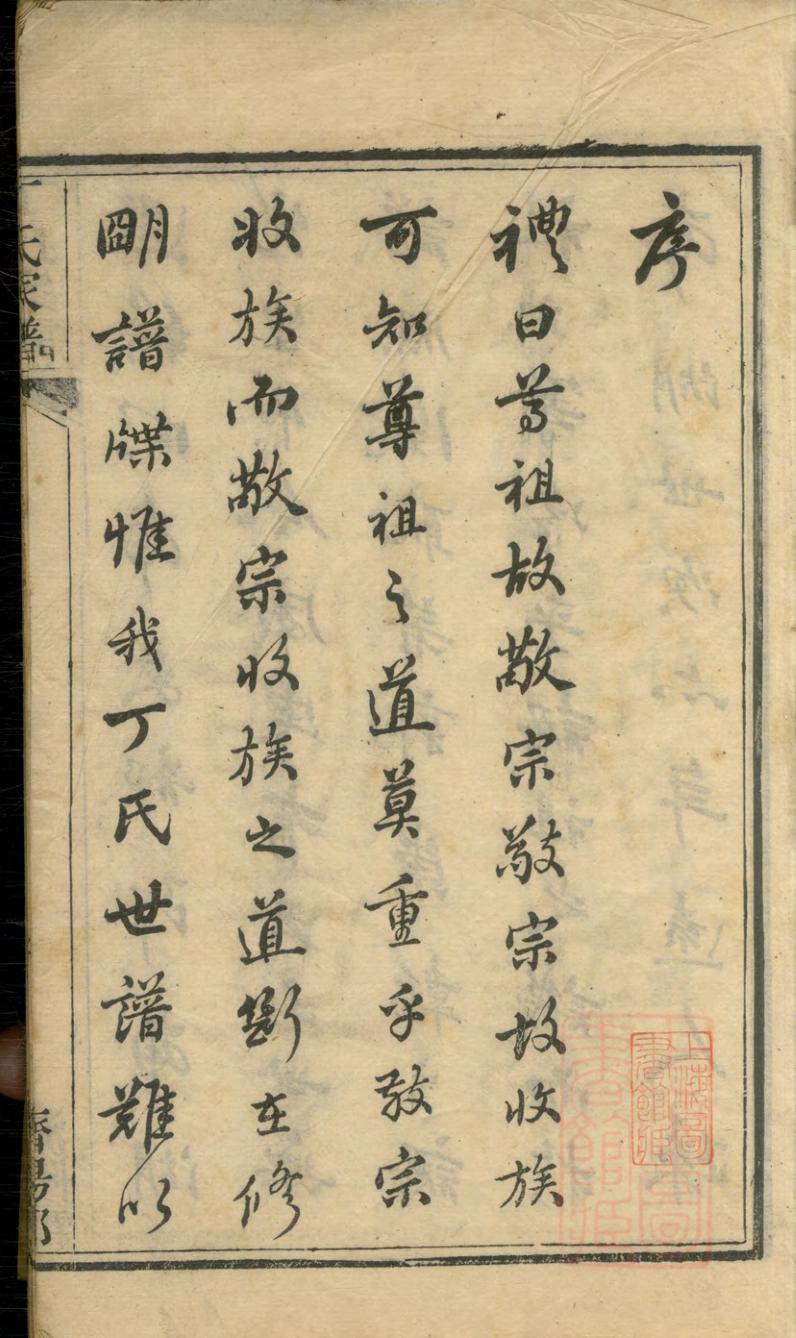 序
禮曰尊祖故敬宗敬宗故收族
可知尊祖之道莫重乎敬宗
收族而敬宗收族之道斷在修
明譜牒惟我丁氏世譜難以
丁氏家譜
濟陽郡
上海圖書館藏